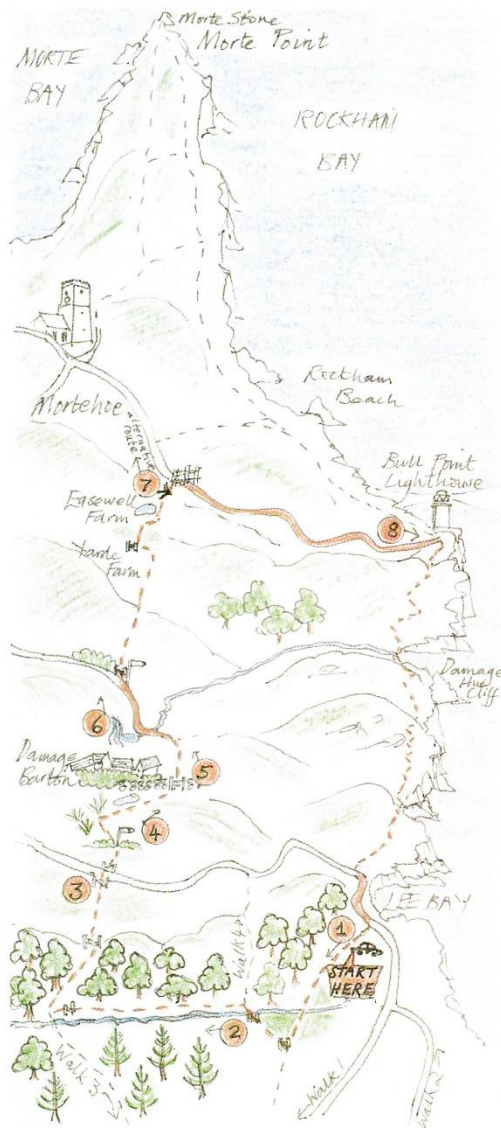 Morte Stone
Morte Point
MORTE
BAY
ROCKHAM
BAY
Rockham
Beach
Mortehoe
alternative
route
Bull Point
Lighthouse
7
8
Easewell
Farm
Yarde
Farm
Damage
Hue
Cliff
6
Damage
Barton
5
4
3
LEE BAY
1
Walk 4
START
HERE
2
Walk 3
Walk 1
Walk 2